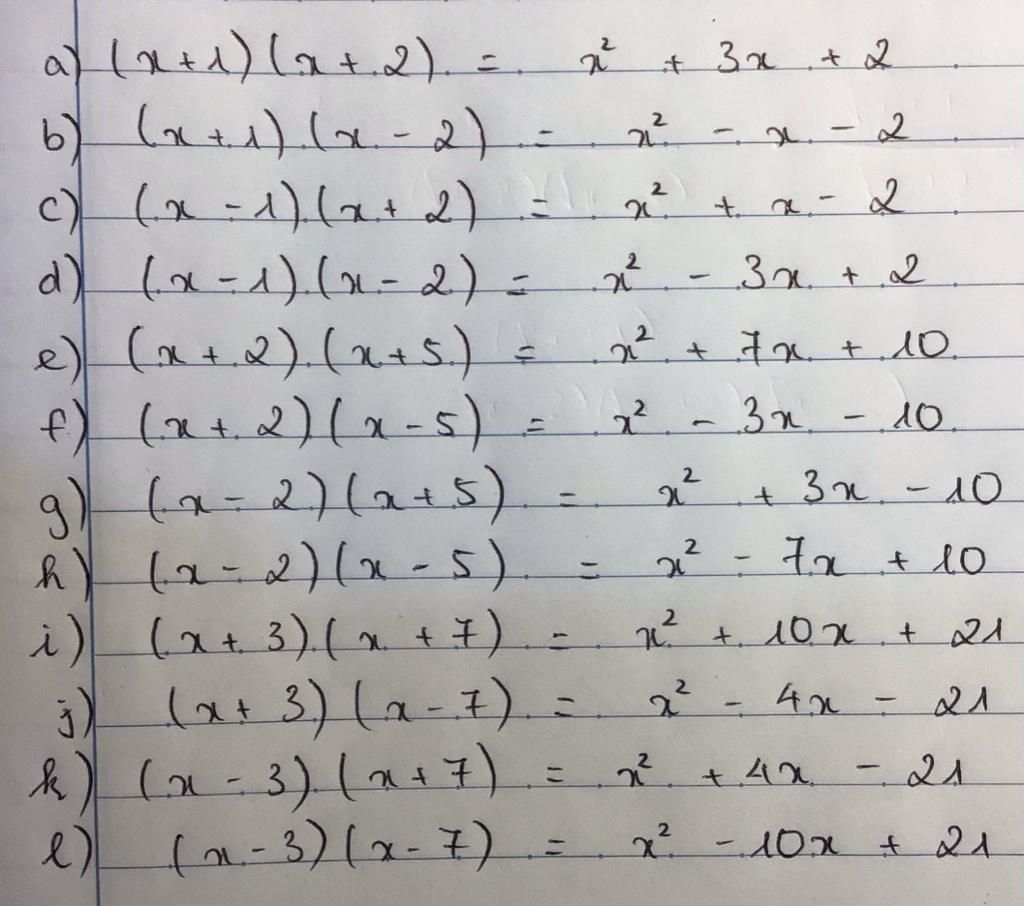 a) (x+1)(x+2) = x² + 3x + 2
b) (x+1)(x-2) = x² - x - 2
c) (x-1)(x+2) = x² + x - 2
d) (x-1)(x-2) = x² - 3x + 2
e) (x+2)(x+5) = x² + 7x + 10
f) (x+2)(x-5) = x² - 3x - 10
g) (x-2)(x+5) = x² + 3x - 10
h) (x-2)(x-5) = x² - 7x + 10
i) (x+3)(x+7) = x² + 10x + 21
j) (x+3)(x-7) = x² - 4x - 21
k) (x-3)(x+7) = x² + 4x - 21
l) (x-3)(x-7) = x² - 10x + 21